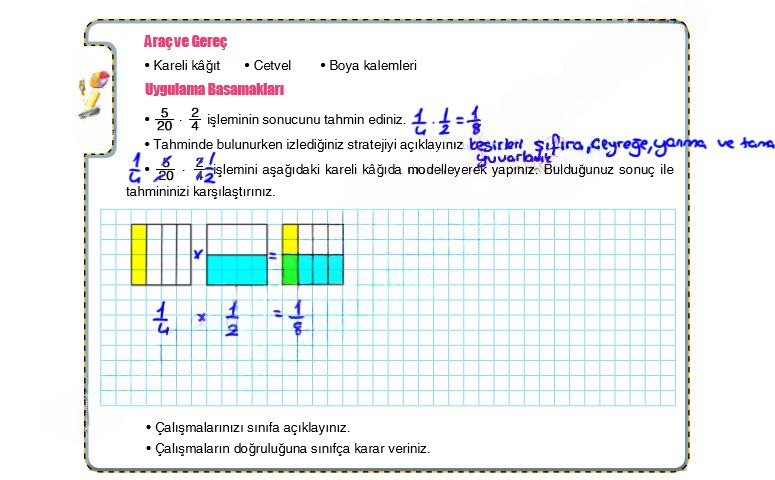 Araç ve Gereç
• Kareli kâğıt • Cetvel • Boya kalemleri
Uygulama Basamakları
• 5/20 · 2/4 işleminin sonucunu tahmin ediniz. 1/4 · 1/2 = 1/8
• Tahminde bulunurken izlediğiniz stratejiyi açıklayınız. kesirleri sıfıra, çeyreğe, yarıma ve tama
yuvarladık
1/4 • 5/20 · 2/4 1/2 işlemini aşağıdaki kareli kâğıda modelleyerek yapınız. Bulduğunuz sonuç ile
tahmininizi karşılaştırınız.
x =
1/4 x 1/2 = 1/8
• Çalışmalarınızı sınıfa açıklayınız.
• Çalışmaların doğruluğuna sınıfça karar veriniz.